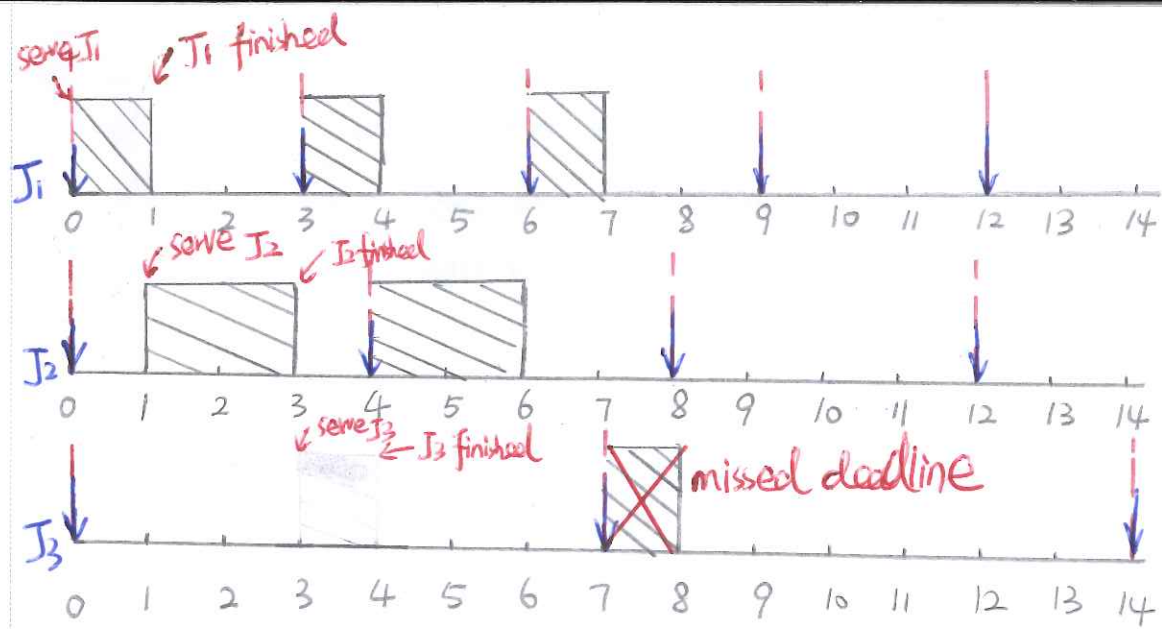 serve J1
J1 finished
J1
0 1 2 3 4 5 6 7 8 9 10 11 12 13 14
serve J2
J2 finished
J2
0 1 2 3 4 5 6 7 8 9 10 11 12 13 14
serve J3
J3 finished
missed deadline
J3
0 1 2 3 4 5 6 7 8 9 10 11 12 13 14